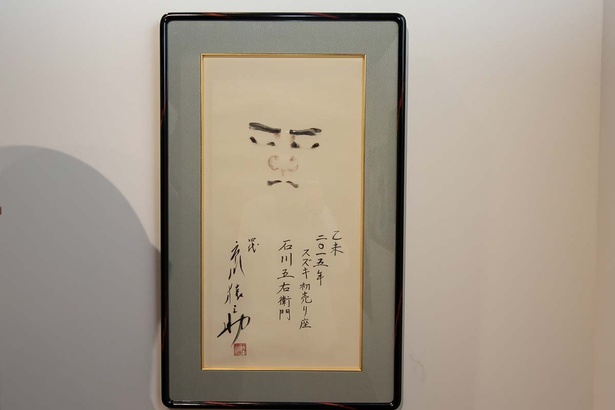 乙未
二〇一五年
スズキ初売り座
石川五右衛門
四代
市川猿之助